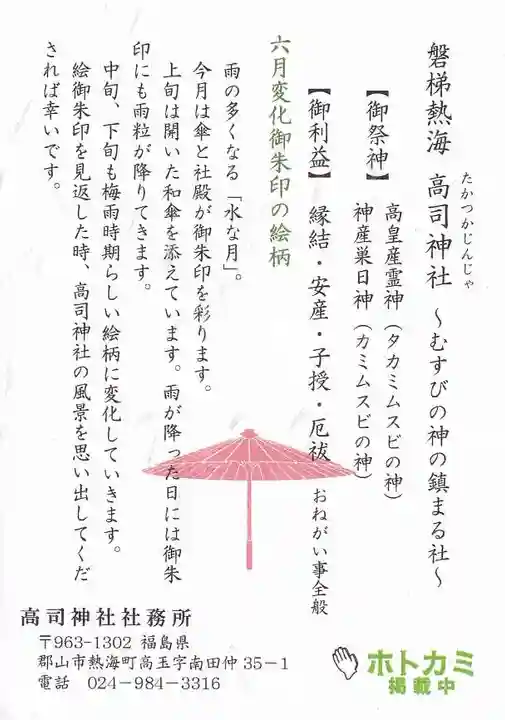 磐梯熱海 高司神社 ～むすびの神の鎮まる社～
たかつかじんじゃ
【御祭神】
高皇産霊神（タカミムスビの神）
神産巣日神（カミムスビの神）
【御利益】 縁結・安産・子授・厄祓 おねがい事全般
六月変化御朱印の絵柄
雨の多くなる「水な月」。
今月は傘と社殿が御朱印を彩ります。
上旬は開いた和傘を添えています。雨が降った日には御朱
印にも雨粒が降りてきます。
中旬、下旬も梅雨時期らしい絵柄に変化していきます。
絵御朱印を見返した時、高司神社の風景を思い出してくだ
されば幸いです。
高司神社社務所
〒963-1302 福島県
郡山市熱海町高玉字南田仲 35－1
電話 024-984-3316
ホトカミ
掲載中